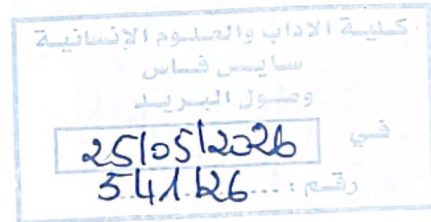 كلية الآداب والعلوم الإنسانية
سايس فاس
وصول البريد
في 25/05/2026
رقم : ... 541/26